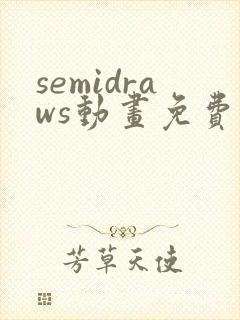 semidra
ws動畫免費
芳草天使